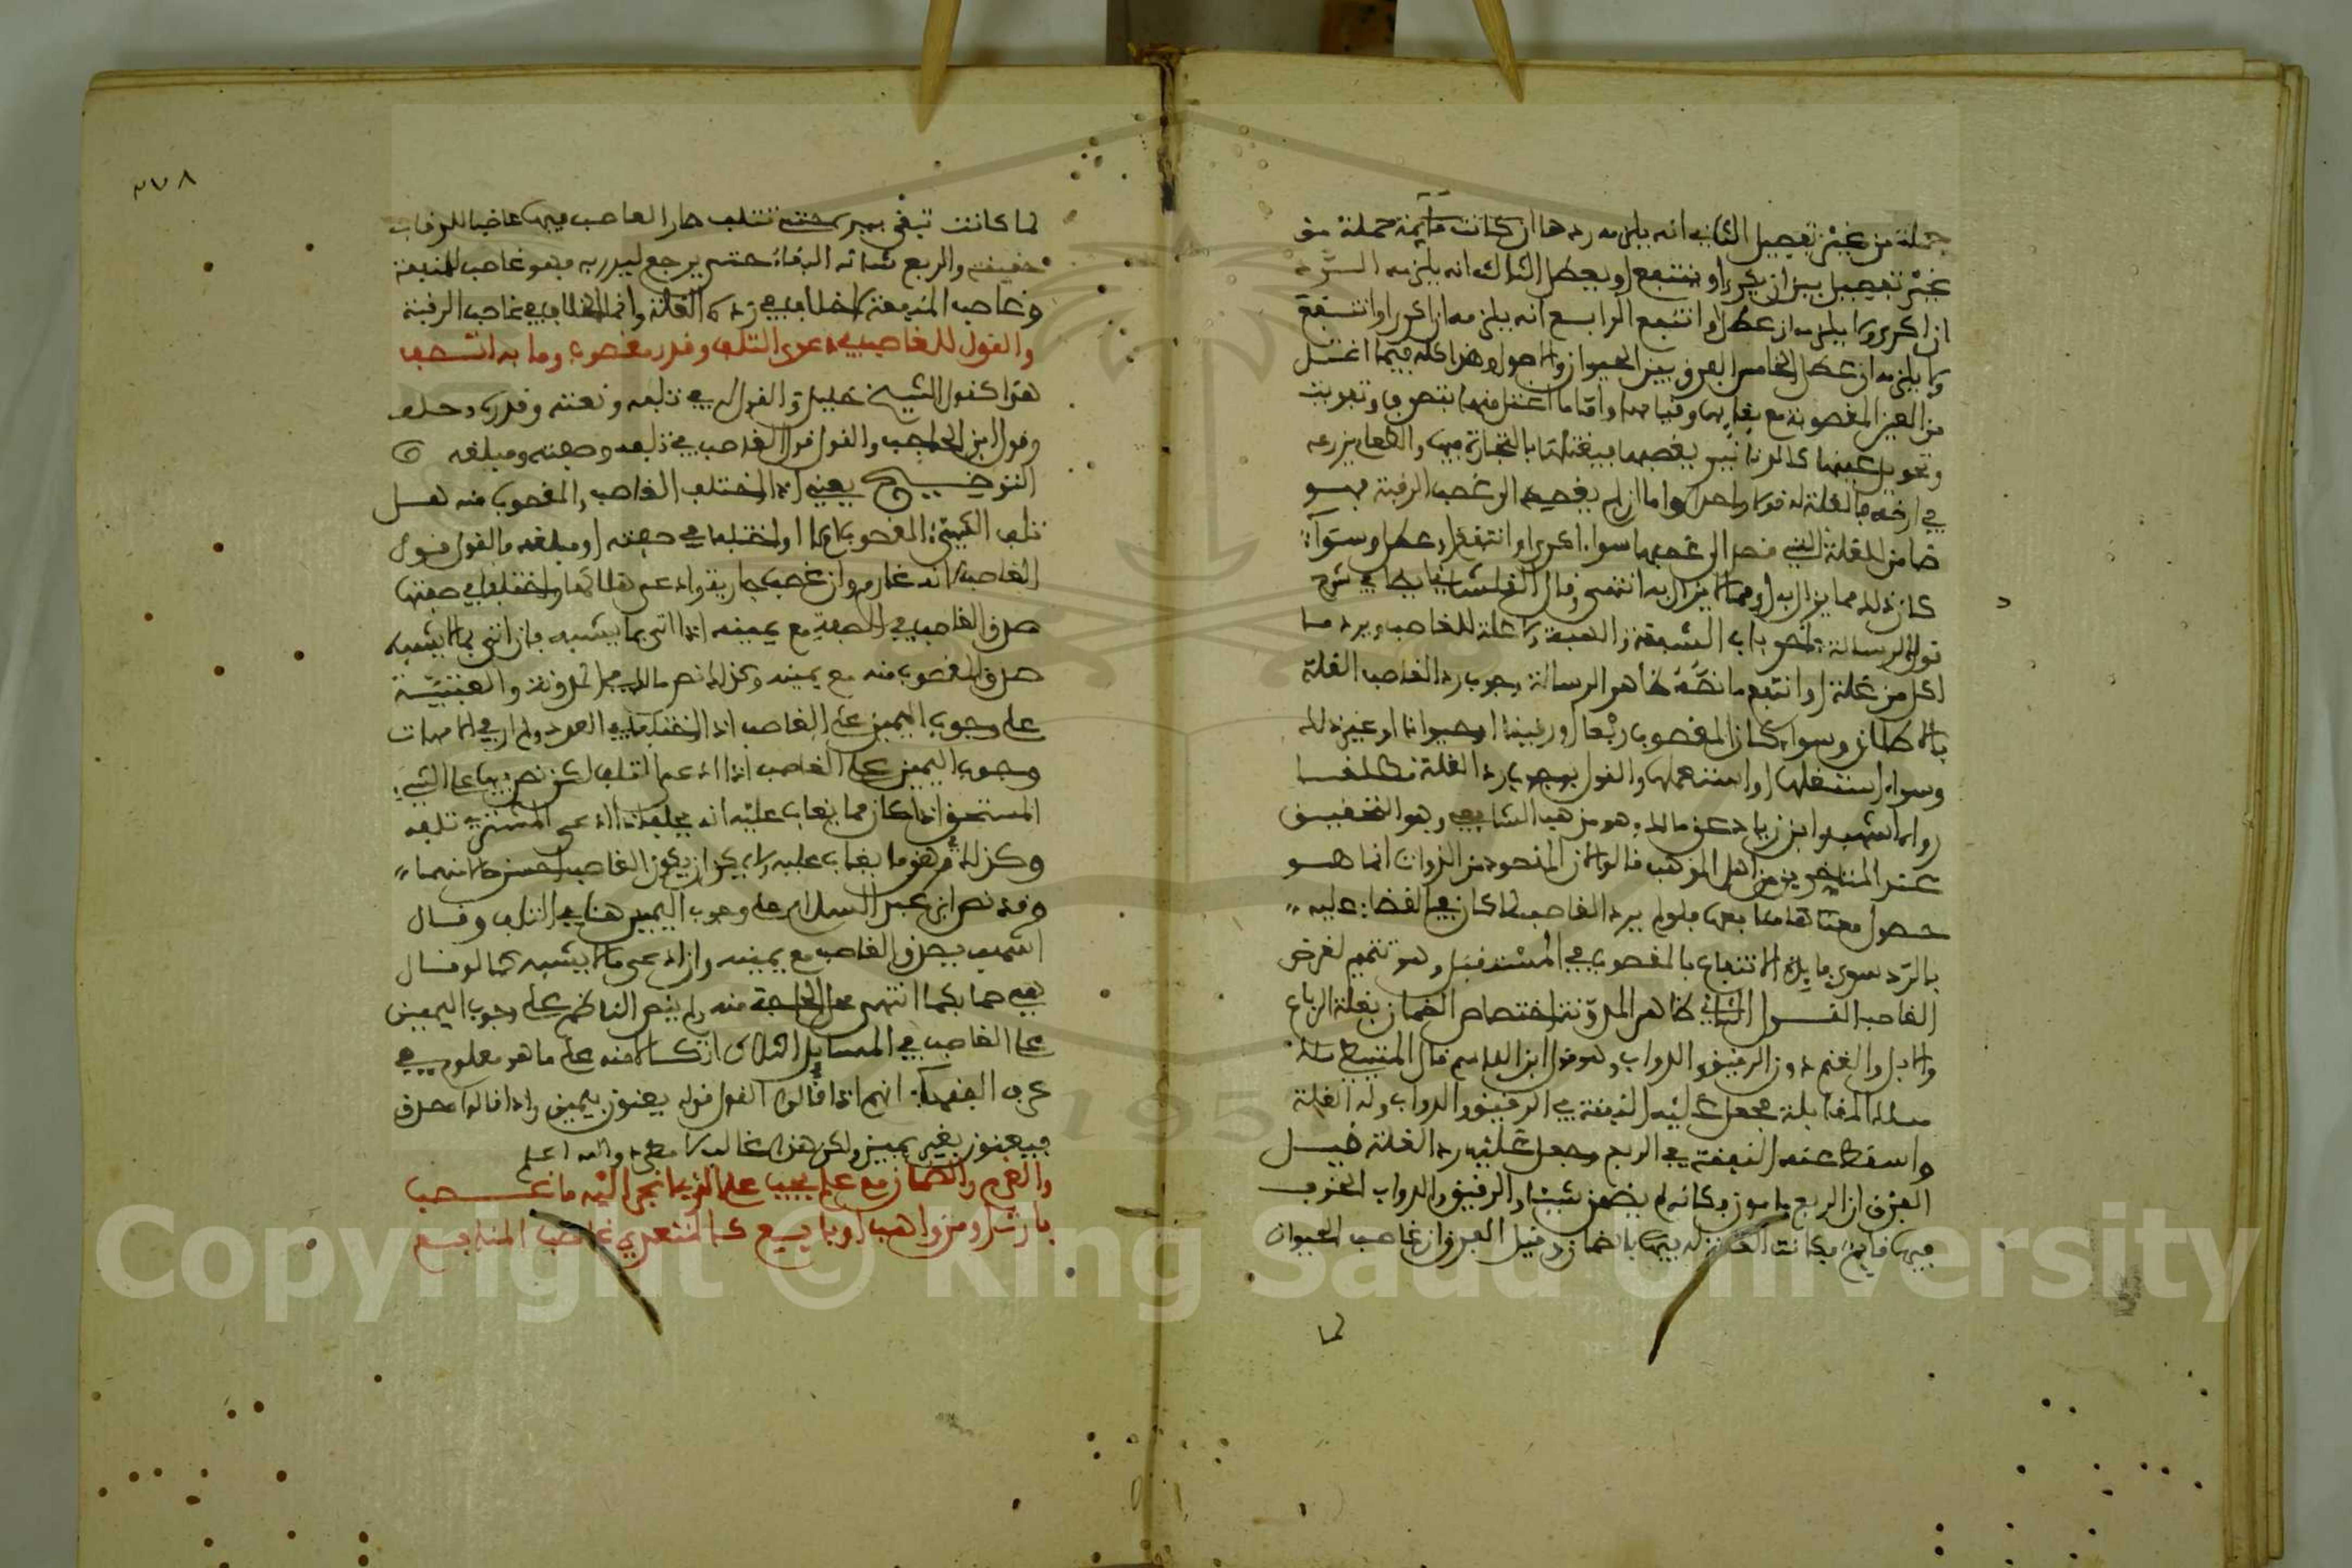 جملة من غير تفصيل الثاني انه يلزمه ردها ان كانت قايمة جملة من
غير تفصيل بين ان يكرى او ينتفع او يعطل الثالث انه يلزمه الرد
ان اكرى ولا يلزمه ان عطل او انتفع الرابع انه يلزمه ان اكرى او انتفع
ولا يلزمه ان عطل الخامس الفرق بين الحيوان والاصول وهذا كله فيما اغتل
من العين المغصوبة مع بقايها وقيامها واما ما اغتل منها بتصرف وتفويت
وتحويل عينها كالدنانير يغصبها فيغتلها بالتجارة فيها والطعام يزرعه
في ارضه فالغلة له قولا واحدا واما ان لم يغصب الرقبة فهو
ضامن للغلة التي قصد الى غصبها سواء اكرى او انتفع او عطل وسواء
كان ذلك مما يزال به او مما لا يزال به انتهى وقال القلشاني في شرح
قول الرسالة باب الشفعة والهبة ولا غلة للغاصب ويرد ما
اكل من غلة او انتفع ما نصه ظاهر الرسالة وجوب رد الغاصب الغلة
بالاطلاق وسواء كان المغصوب ربعا او رقيقا او حيوانا او غير ذلك
وسواء استغلها او استعملها والقول بوجوب رد الغلة مطلقا
رواه اشهب وابن زياد عن مالك وهو مذهب الشافعي وهو التحقيق
عند المتاخرين من اهل المذهب قالوا لان المقصود من الذوات انما هو
حصول منافعها فلو لم يرد الغاصب لما كان في القضاء عليه
بالرد سوى ما يلزم الانتفاع بالمغصوب في المستقبل وهو تتميم لغرض
الغاصب القول الثاني ظاهر المدونة اختصاص الضمان بغلة الرباع
والابل والغنم دون الرقيق والدواب وهو قول ابن القاسم قال المتيطي سلك
مسلك المقابلة فجعل عليه النفقة في الرقيق والدواب وله الغلة
واسقط عنه النفقة في الربع وجعل عليه رد الغلة قيل
الفرق ان الربع مامون فكانه لم يضمن شيئا والرقيق والدواب الخوف
فيها قايم فكانت الغلة له فيها بالضمان وقيل الفرق ان غاصب الحيوان
لما
٢٧٨
لما كانت تبقى بيده حتى تتلف صار الغاصب فيها غاصبا للرقاب
حقيقة والربع شانه البقاء حتى يرجع ليد ربه فهو غاصب للمنفعة
وغاصب المنفعة لا خلاف في رده الغلة وانما الخلاف في غاصب الرقبة
والقول للغاصب في دعوى التلف وقدر مغصوب وما به اتصف
هذا كقول الشيخ خليل والقول له في تلفه ونعته وقدره وحلف
وقول ابن الحاجب والقول قول الغاصب في تلفه وصفته ومبلغه
التوضيح يعني اذا اختلف الغاصب والمغصوب منه هل
تلف الشيء المغصوب ام لا او اختلفا في صفته او مبلغه فالقول قول
الغاصب لانه غارم وان غصب جارية وادعى هلاكها واختلفا في صفتها
صدق الغاصب في الصفة مع يمينه اذا اتى بما يشبه فان اتى بما لا يشبه
صدق المغصوب منه مع يمينه وكذلك نص مالك في المدونة والعتبية
على وجوب اليمين على الغاصب اذا اختلفا في العدد ولم ار في الامهات
وجوب اليمين على الغاصب اذا ادعى التلف لكن نص فيها على الشيء
المستحق اذا كان مما يغاب عليه انه يحلف اذا ادعى المشتري تلفه
وكذلك في رهن ما يغاب عليه ولا يمكن ان يكون الغاصب احسن حالا منهما
وقد نص ابن عبد السلام على وجوب اليمين هنا في التلف وقال
اشهب يصدق الغاصب مع يمينه وان ادعى ما لا يشبه كما لو قال
هي صما بكما انتهى محل الحاجة منه ولم ينص الناظم على وجوب اليمين
على الغاصب في المسايل الثلاث اتكالا منه على ما هو معلوم في
عرف الفقهاء انهم اذا قالوا القول قوله يعنون بيمين واذا قالوا صدق
فيعنون بغير يمين ولكن هذا غالب لا مطرد والله اعلم
والغرم والضمان مع علم يجب على الذي انجر اليه ما غصب
بارث او من واهب او بايع كالمتعدي غاصب المنافع